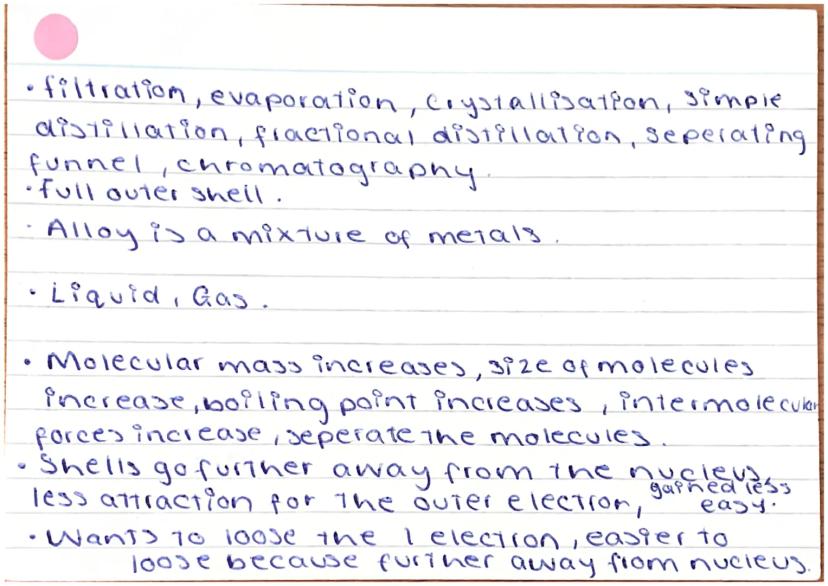 · filtration, evaporation, crystallisation, simple
distillation, fractional distillation, seperating
funnel, chromatography.
· full outer shell.
· Alloy is a mixture of metals.
· Liquid, Gas.
· Molecular mass increases, size of molecules
increase, boiling point increases, intermolecular
forces increase, seperate the molecules.
· Shells go further away from the nucleus,
less attraction for the outer electron, gained less easy.
· Wants to loose the 1 electron, easier to
loose because further away from nucleus.